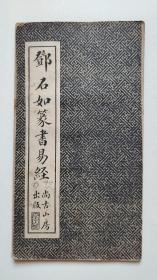 鄧石如篆書易經
尚古山房
出版